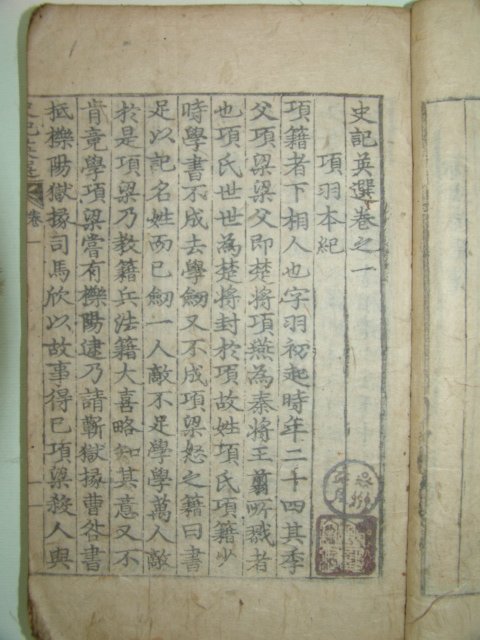 史記英選卷之一
項羽本紀
項籍者下相人也字羽初起時年二十四其季
父項梁梁父即楚將項燕為秦將王翦所戮者
也項氏世世為楚將封於項故姓項氏項籍少
時學書不成去學劒又不成項梁怒之籍曰書
足以記名姓而已劒一人敵不足學學萬人敵
於是項梁乃教籍兵法籍大喜略知其意又不
肯竟學項梁嘗有櫟陽逮乃請蘄獄掾曹咎書
抵櫟陽獄掾司馬欣以故事得已項梁殺人與
卷一